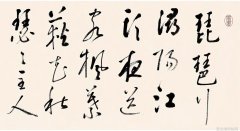 琵琶行
浔陽江
頭夜送
客楓葉
荻花秋
瑟〻主人